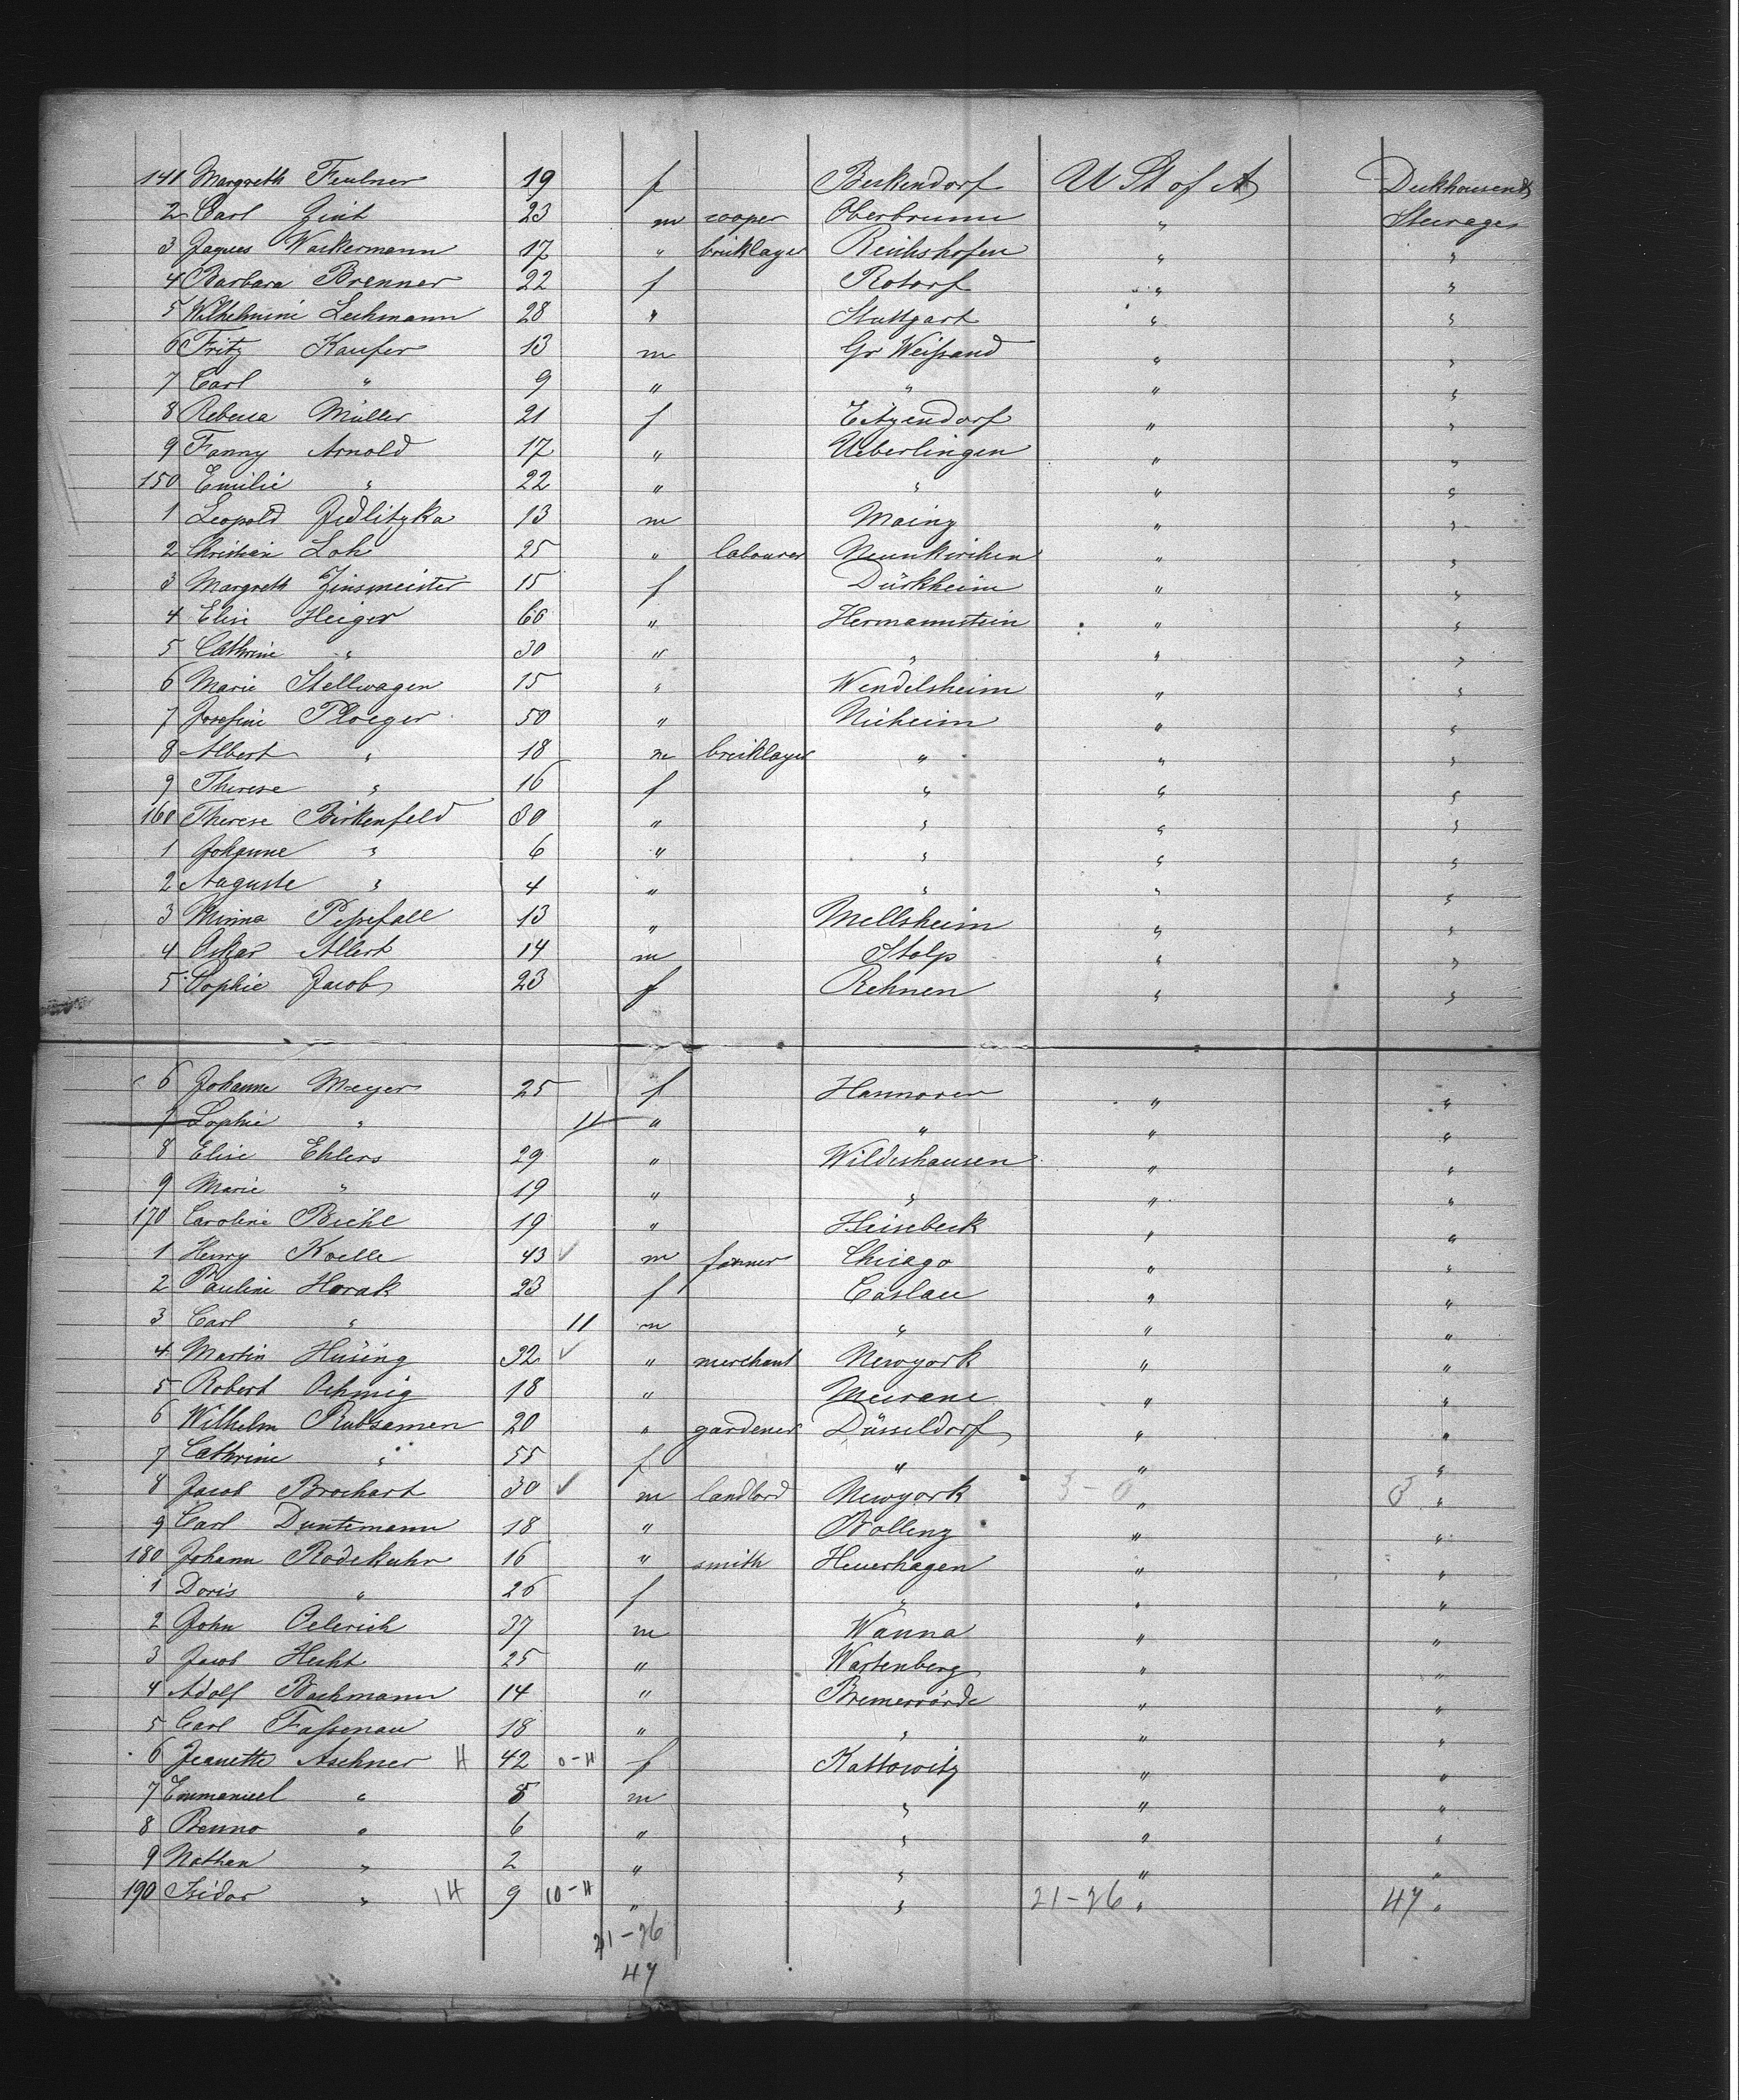 141 Margreth Feulner 19 f Beikendorf U St of A Deckhouse &
2 Carl Zint 23 m cooper Oberbrunn " Steerage
3 Jaques Wackermann 17 " bricklayer Reichshofen " "
4 Barbara Brenner 22 f Rotorf " "
5 Wilhelmine Lechmann 28 " Stuttgart " "
6 Fritz Kaufer 13 m Gr Weißand " "
7 Carl " 9 " " " "
8 Rebecca Müller 21 f Eitzendorf " "
9 Fanny Arnold 17 " Ueberlingen " "
150 Emilie " 22 " " " "
1 Leopold Jedlitzka 13 m Mainz " "
2 Christian Loh 25 " labourer Neunkirchen " "
3 Margreth Zinsmeister 15 f Dürkheim " "
4 Elise Heiger 60 " Hermannstein " "
5 Cathrine " 30 " " " "
6 Marie Stellwagen 15 " Wendelsheim " "
7 Josefine Ploeger 50 " Nieheim " "
8 Albert " 18 m bricklayer " " "
9 Therese " 16 f " " "
160 Therese Birkenfeld 30 " " " "
1 Johanne " 6 " " " "
2 Auguste " 4 " " " "
3 Minna Peßefall 13 " Mellsheim " "
4 Oskar Allert 14 m Stolp " "
5 Sophie Jacob 23 f Rehnen " "
6 Johanne Meyer 25 f Hannover " "
7 Sophie " 11 " " " "
8 Elise Ehlers 29 " Wildeshausen " "
9 Marie " 19 " " " "
170 Caroline Biehl 19 " Heisebeck " "
1 Henry Koelle 43 ✓ m farmer Chicago " "
2 Pauline Horak 23 f Caslau " "
3 Carl " 11 m " " "
4 Martin Hüsing 32 ✓ " merchant Newyork " "
5 Robert Oehmig 18 " Meerane " "
6 Wilhelm Rubsamen 20 " gardener Düsseldorf " "
7 Cathrine " 55 f " " "
8 Jacob Brochart 30 ✓ m landlord Newyork 3-0 " 3 "
9 Carl Duntemann 18 " Bollenz " "
180 Johann Rodekuhr 16 " smith Heuerhagen " "
1 Doris " 26 f " " "
2 John Oelerich 37 m Wanna " "
3 Jacob Hecht 25 " Wartenberg " "
4 Adolf Bachmann 14 " Bremervörde " "
5 Carl Faßenau 18 " " " "
6 Jeanette Aschner H 42 0-H f Kattowitz " "
7 Emmanuel " 8 m " " "
8 Benno " 6 " " " "
9 Nathan " 2 " " " "
190 Isidor " 1H 9 10-H " " 21-26 " 47 "
21-26
47